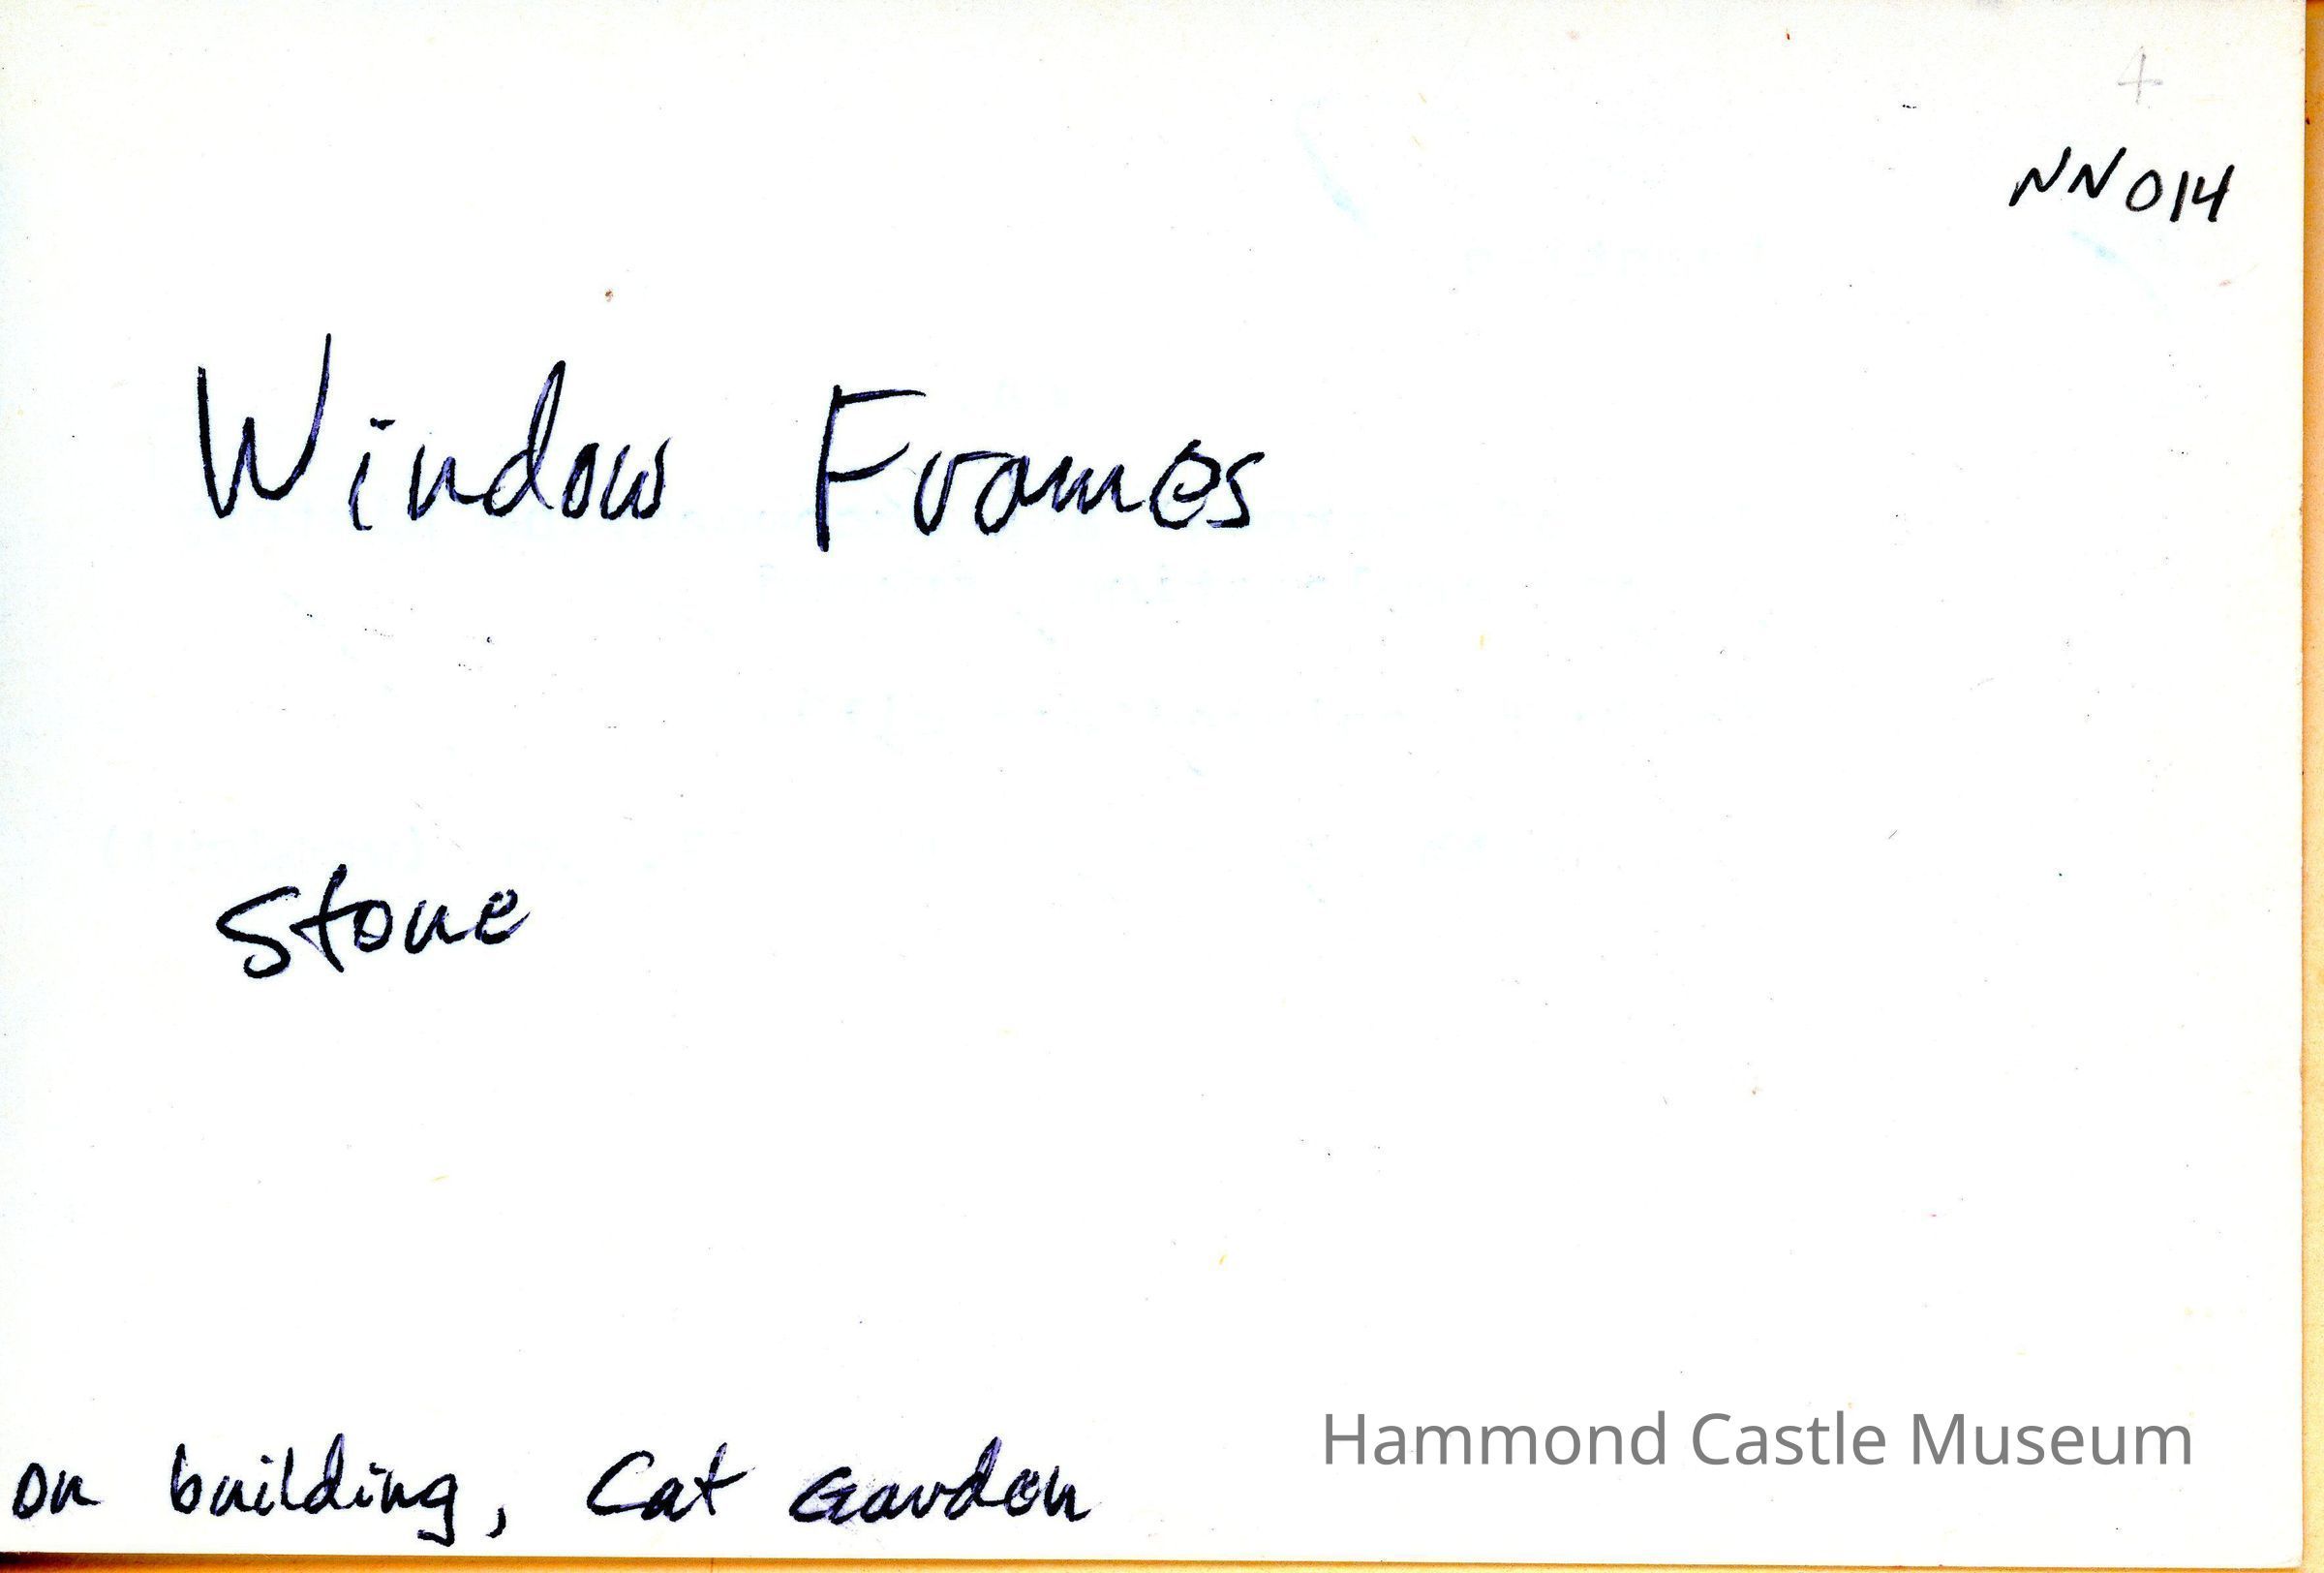 +
NN014
Window Frames
Stone
Hammond Castle Museum
on building, Cat Garden